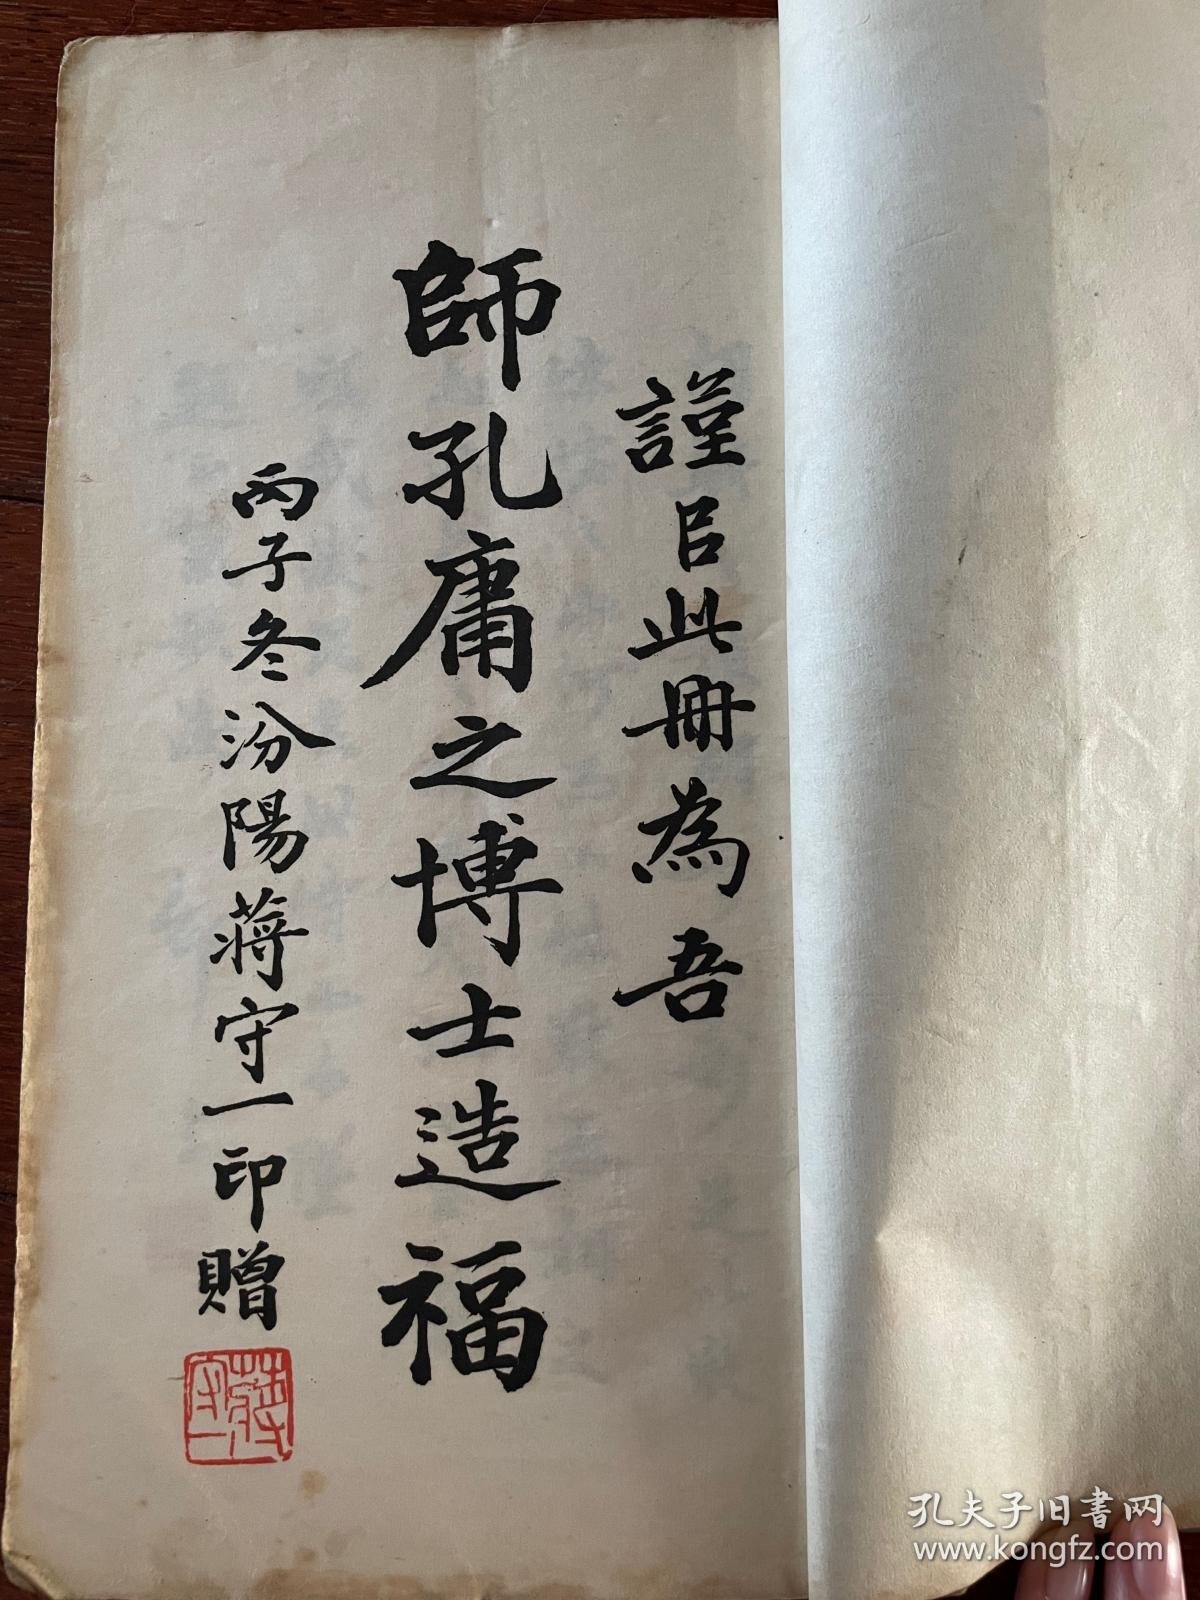 謹㠯此冊為吾
師孔庸之博士造福
丙子冬汾陽蔣守一印贈
蔣守一
孔夫子旧书网
www.kongfz.com